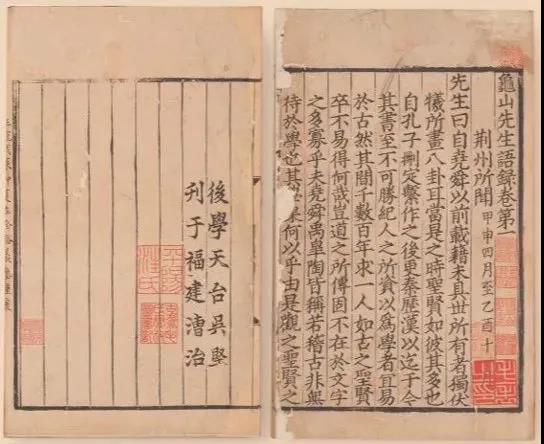 龜山先生語録卷第一
荆州所聞 甲申四月至乙酉十
先生曰自堯舜以前載藉未具世所有者獨伏
犧所畫八卦耳當是之時聖賢如彼其多也
自孔子刪定繫作之後更秦歷漢以迄于今
其書至不可勝紀人之所資以爲學者宜易
於古然其間千數百年求一人如古之聖賢
卒不易得何哉豈道之所傳固不在於文字
之多寡乎夫堯舜禹臯陶皆稱若稽古非無
待於學也其學果何以乎由是觀之聖賢之
後學天台吳堅
刊于福建漕治
平陽
汪氏